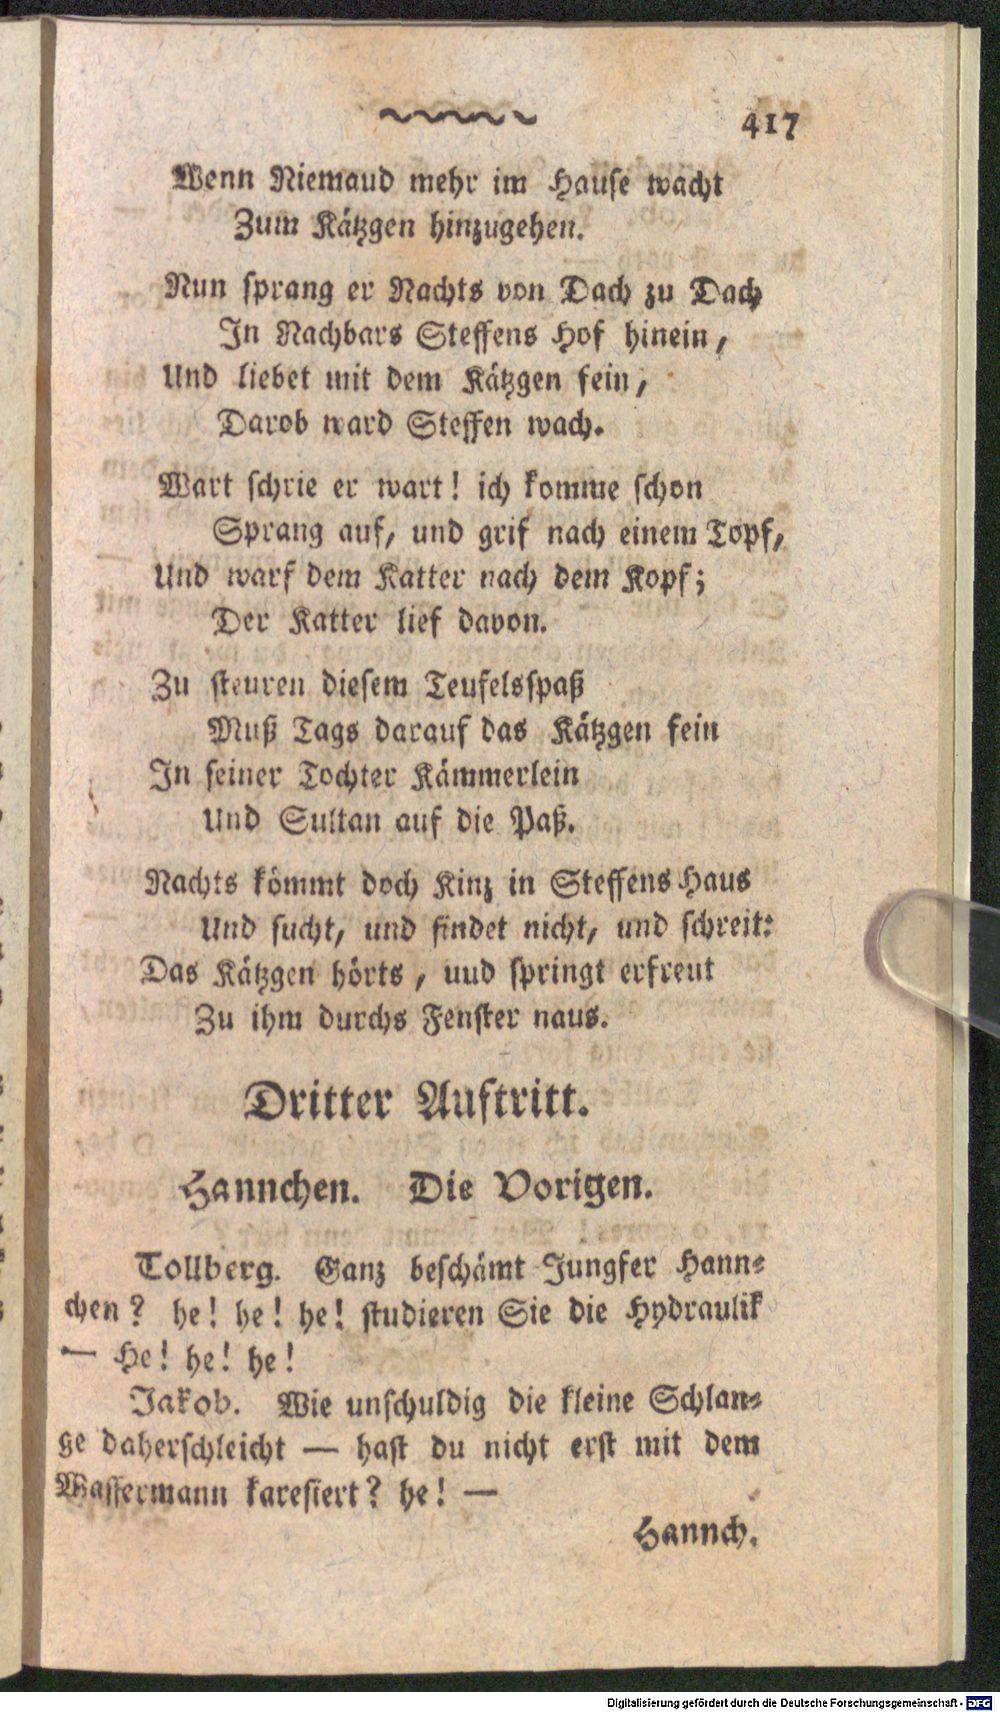 417
Wenn Niemaud mehr im Hause wacht
Zum Kätzgen hinzugehen.
Nun sprang er Nachts von Dach zu Dach
In Nachbars Steffens Hof hinein,
Und liebet mit dem Kätzgen fein,
Darob ward Steffen wach.
Wart schrie er wart! ich komme schon
Sprang auf, und grif nach einem Topf,
Und warf dem Katter nach dem Kopf;
Der Katter lief davon.
Zu steuren diesem Teufelsspaß
Muß Tags darauf das Kätzgen fein
In seiner Tochter Kämmerlein
Und Sultan auf die Paß.
Nachts kömmt doch Kinz in Steffens Haus
Und sucht, und findet nicht, und schreit:
Das Kätzgen hörts, uud springt erfreut
Zu ihm durchs Fenster naus.
Dritter Auftritt.
Hannchen. Die Vorigen.
Tollberg. Ganz beschämt Jungfer Hann-
chen? he! he! he! studieren Sie die Hydraulik
— He! he! he!
Jakob. Wie unschuldig die kleine Schlan-
ge daherschleicht — hast du nicht erst mit dem
Wassermann karesiert? he! —
Hannch.
Digitalisierung gefördert durch die Deutsche Forschungsgemeinschaft - DFG